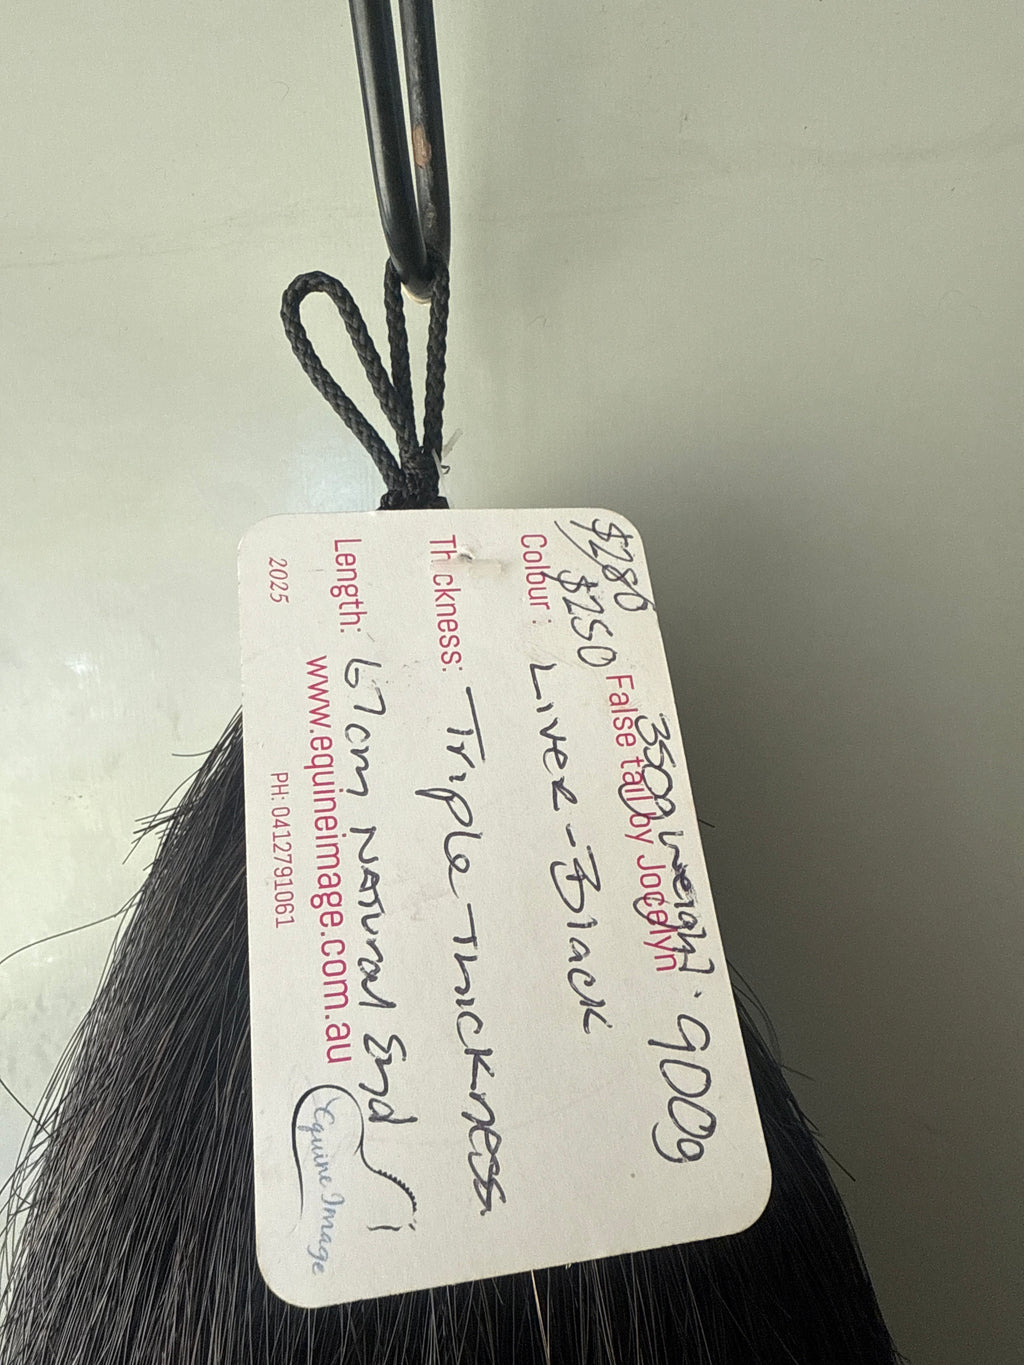 $280
$250
False tail by Jocelyn
350g weight . 900g
Colour : Liver-Black
Thickness: Triple Thickness
Length: 67cm Natural End
www.equineimage.com.au
2025
PH: 0412791061
Equine Image